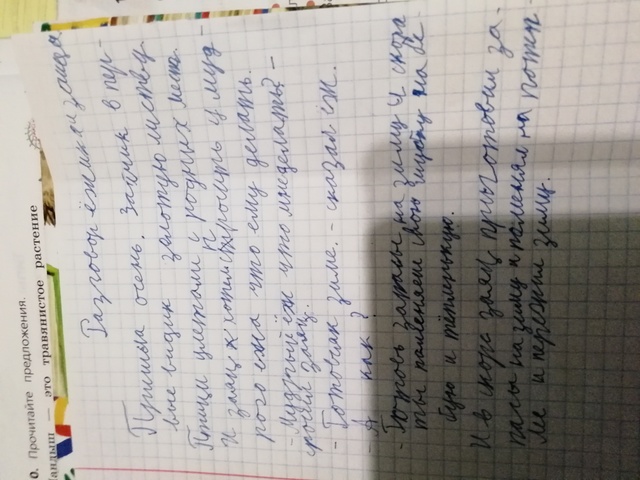 0. Прочитайте предложения.
андыш — это травянистое растение
Разговор ёжика и зайца
Пришла очень. Зайчик в пур-
вые видик золотую листву.
Птици улетали с родних места.
И заяц хотел спросить у муд
рого ежа что ему делать.
- Мудрый ёж что мне делать? -
спросил заяц.
- Готовся к зиме. - сказал ёж.
- А как?
- Готовь запасы на зиму и скоро
ты поменяеш свою шубку на бе
лую и тёпленькую.
И в скоре заяц приготовил за-
пасы на зиму и поменял на потеп-
ле и пережил зиму.